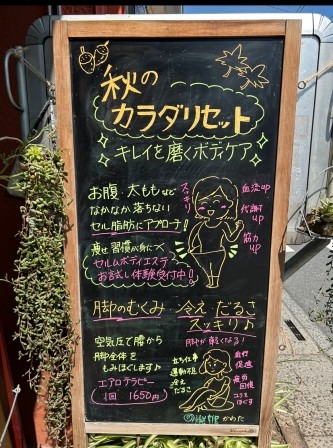 秋の
カラダリセット
キレイを磨くボディケア
お腹・太ももなど
なかなか落ちない
セル脂肪にアプローチ!
痩せ習慣が身につく
セルムボディエステ
お試し体験受付中!
スッキリ
血流up
代謝up
筋力up
脚のむくみ 冷え だるさ
スッキリ♪
脚が軽くなる!
空気圧で腰から
脚全体を
もみほぐします♪
エアロテラピー
1回 1650円
立ち仕事
運動不足
冷え
だるさ
血行
促進
疲労
回復
コリを
ほぐす
かわた